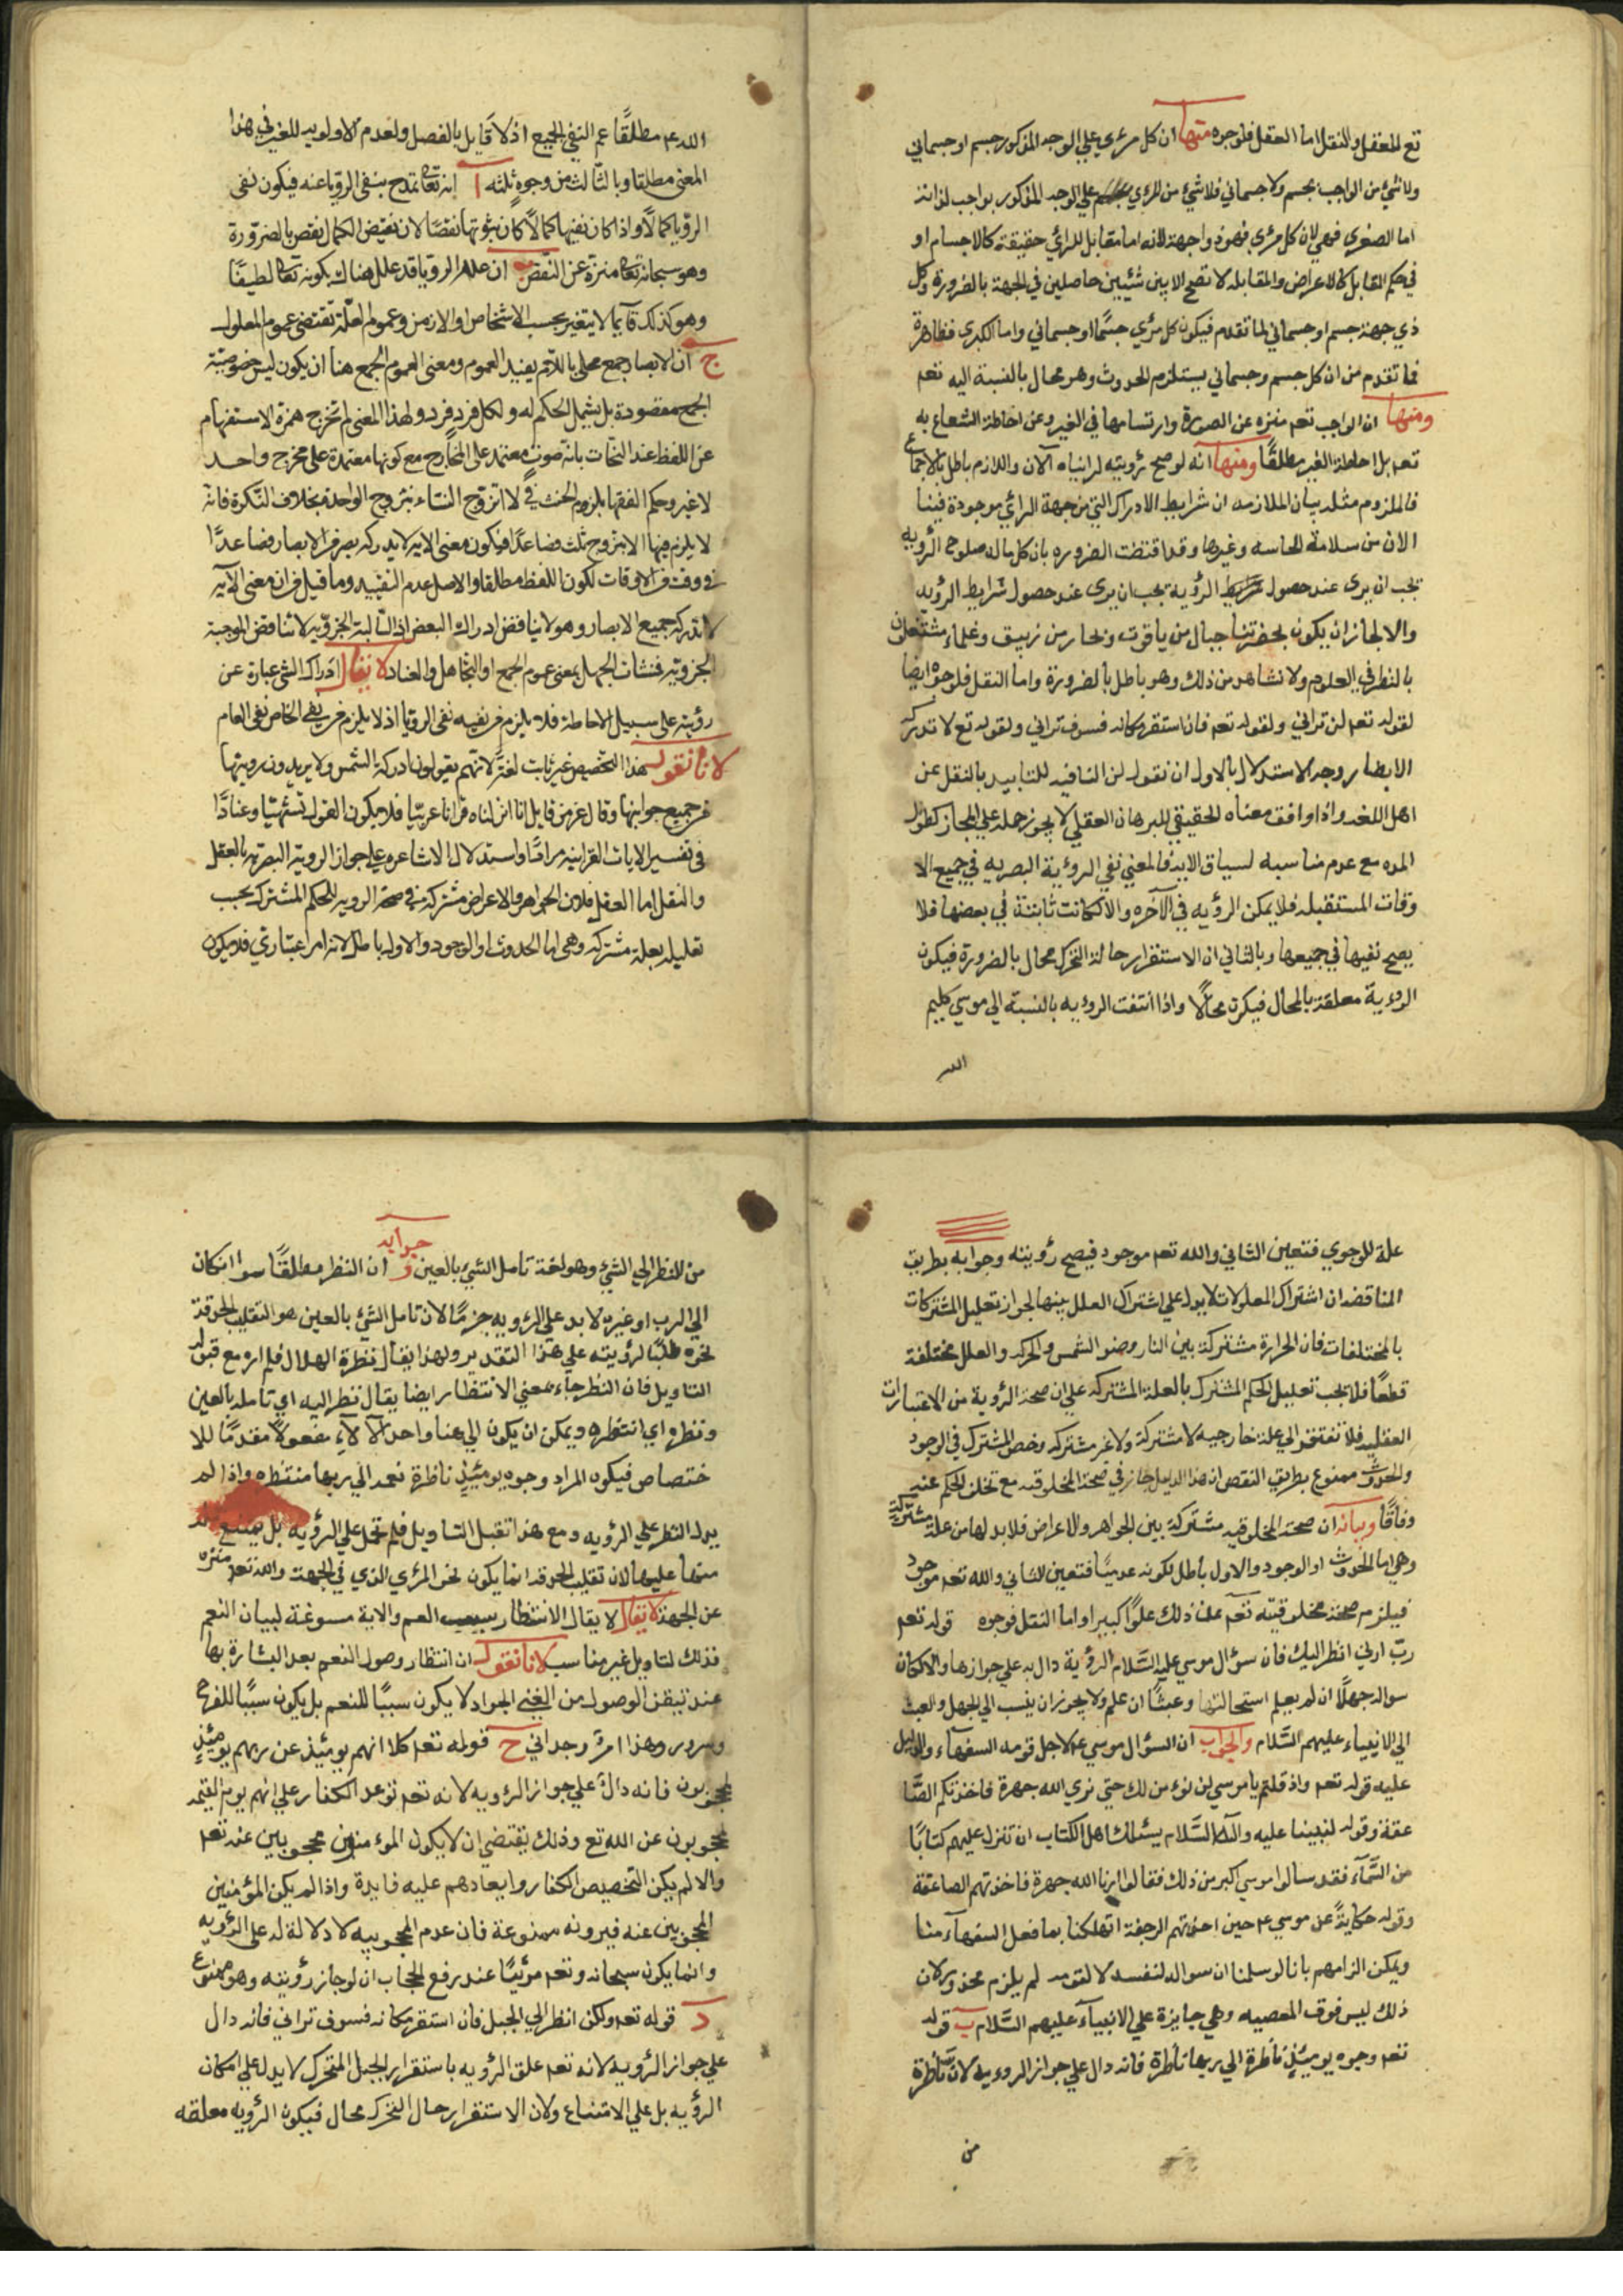 تع للعقل والنقل اما العقل فلوجوه منها ان كل مرئي علي الوجه المذكور جسم او جسماني
ولا شئ من الواجب بجسم ولا جسماني فلا شئ من المرئي علي الوجه المذكور بواجب لذاته
اما الصغري فهي لان كل مرئي فهو ذو اجهة لانه اما مقابل للرائي حقيقة كالاجسام او
في حكم المقابل كالاعراض والمقابله لا تصح الا بين شيئين حاصلين في الجهة بالضرورة وكل
ذي جهة جسم او جسماني لما تقدم فيكون كل مرئي جسمًا او جسماني واما الكبري فظاهرة
مما تقدم من ان كل جسم وجسماني يستلزم الحدوث وهو محال بالنسبة اليه تعم
ومنها ان الواجب تعم منزه عن الصورة وارتسامها في الغير وعن احاطة الشعاع به
تعم بل احاطة الغير مطلقًا ومنها انه لو صح رؤيته لرايناه الآن واللازم باطل بالاجماع
فالملزوم مثله بيان الملازمه ان شرايط الادراك التي من جهة الرائي موجودة فينا
الان من سلامة الحاسه وغيرها وقد اقتضت الضروره بان كل ما له صلوح الرؤيه
يجب ان يرى عند حصول شرايط الرؤية يجب ان يرى عند حصول شرايط الرؤيه
والا لجاز ان يكون بحضرتنا جبال من ياقوت وبحار من زيبق وعلماء مشتغلون
بالنظر في العلوم ولا نشاهد من ذلك وهو باطل بالضرورة واما النقل فلوجوه ايضا
لقوله تعم لن تراني ولقوله تعم فان استقر مكانه فسوف تراني ولقوله تع لا تدركه
الابصار وجه الاستدلال بالاول ان نقول لن النافيه للتابيد بالنقل عن
اهل اللغه واذا وافق معناه الحقيقي للبرهان العقلي لا يجوز حمله علي المجاز كطول
المده مع عدم مناسبه لسياق الايه فالمعني نفي الرؤية البصريه في جميع الا
وقات المستقبله فلا يمكن الرؤيه في الآخره والا لكانت ثابتة في بعضها فلا
يصح نفيها في جميعها وبالثاني ان الاستقرار حالة التحرك محال بالضرورة فيكون
الرؤية معلقة بالمحال فيكون محالًا واذا انتفت الرؤيه بالنسبه الي موسي كليم
الله
الله عم مطلقًا عم النفي الجميع اذ لا قايل بالفصل ولعدم الاولويه للغير في هذا
المعنى مطلقا وبالثالث من وجوه ثلثه ا انه تعالى تمدح بنفى الرويا عنه فيكون نفى
الرويا كمالًا واذا كان نفيها كمالًا كان ثبوتها نقصًا لان نقيض الكمال نقص بالضرورة
وهو سبحانه تعالى منزة عن النقص ب ان عدم الرويا قد علل هناك بكونه تعالى لطيفًا
وهو كذلك دائما لا يتغير بحسب الاشخاص او الازمن وعموم العلّة تقتضى عموم المعلول
ج ان الابصار جمع محلى باللام يفيد العموم ومعنى العموم الجمع هنا ان يكون ليس خصوصيّة
الجمع مقصودة بل يشمل الحكم له ولكل فرد فرد ولهذا المعنى لم تخرج همزة الاستفهام
عن اللفظ عند النحات بانه صوت معتمد على المخارج مع كونها معتمدة على مخرج واحد
لا غير وحكم الفقها بلزوم الحنث في لا اتزوج النساء بتزوج الواحدة بخلاف النّكرة فانه
لا يلزم فيها الا بتزوج ثلث فصاعدًا فيكون معنى الايه لا يدركه بصر من الابصار فصاعدًا
في وقت من الاوقات لكون اللفظ مطلقا والاصل عدم التقييد وما قيل من ان معنى الآيه
لا تدركه جميع الابصار وهو لا يناقض ادراك البعض اذ السالبة الجزويّة لا تناقض الموجبة
الجزويّه فمنشاه الجهل بمعنى عموم الجمع او التجاهل والعناد لا يقال ادراك الشى عبارة عن
رؤيته على سبيل الاحاطة فلا يلزم من نفيه نفى الرويا اذ لا يلزم من نفى الخاص نفى العام
لانا نقول هذا التخصيص غير ثابت لغةً لانهم يقولون ادركت الشمس ولا يريدون رويتها
من جميع جوانبها وقال عز من قايل انا انزلناه قرانا عربيّا فلا يكون القول تشهّيا وعنادًا
فى تفسير الايات القرانيه مرامًا واستدلال الاشاعره على جواز الرويه البصريه بالعقل
والنقل اما العقل فلان الجواهر والاعراض مشتركة فى صحة الرويه للحكم المشترك يجب
تعليله بعلة مشتركه وهى اما الحدوث او الوجود والاول باطل لانه امر اعتبارى فلا يكون
علة للوجوي فتعين الثاني والله تعم موجود فيصح رؤيته وجوابه بطريق
المناقضه ان اشتراك المعلولات لا يدل علي اشتراك العلل بينها لجواز تعليل المشتركات
بالمختلفات فان الحرارة مشتركة بين النار وضو الشمس والحركه والعلل مختلفة
قطعًا فلا يجب تعليل الحكم المشترك بالعلة المشتركه علي ان صحة الرؤية من الاعتبارات
العقليه فلا تفتقر الي علة خارجيه لا مشتركة ولا غير مشتركه وحصر المشترك في الوجود
والحدوث ممنوع بطريق النقض ان هذا الدليل جاز في صحة المخلوقيه مع تخلف الحكم عنه
وفاقًا وبيانه ان صحة المخلوقيه مشتركة بين الجواهر والاعراض فلا بد لها من علة مشتركة
وهي اما الحدوث او الوجود والاول باطل لكونه عدميًا فتعين الثاني والله تعم موجود
فيلزم صحة مخلوقيته تعم عن ذلك علوًا كبيرا واما النقل فوجوه قوله تعم
ربّ ارني انظر اليك فان سؤال موسي عليه السّلام الرؤية دال به علي جوازها والا لكان
سواله جهلًا ان لم يعلم استحالتها وعبثًا ان علم ولا يجوز ان ينسب الي الجهل والعبث
الي الانبياء عليهم السّلام والجواب ان السؤال موسي عم لاجل قومه السفهاء والدليل
عليه قوله تعم واذ قلتم يا موسي لن نؤمن لك حتي نري الله جهرة فاخذتكم الصّا
عقة وقوله لنبينا عليه وآله السّلام يسئلك اهل الكتاب ان تنزل عليهم كتابًا
من السّمآء فقد سالوا موسي اكبر من ذلك فقالوا ارنا الله جهرة فاخذتهم الصاعقة
وقوله حكايةً عن موسي عم حين اخذتهم الرجفة اتهلكنا بما فعل السفهآء منا
ويمكن الزامهم بانا لو سلمنا ان سواله لنفسه لا لقومه لم يلزم محذور لان
ذلك ليس فوق المعصيه وهي جايزة علي الانبيآء عليهم السّلام ب قوله
تعم وجوه يومئذٍ ناضرة الي ربها ناظرة فانه دال علي جواز الرويه لان ناظرة
من
جوابه
من النظر الي الشئ وهو لغة تامل الشئ بالعين و ان النظر مطلقًا سوا كان
الي الرب او غيره لا يدل علي الرؤيه جزمًا لان تامل الشئ بالعين هو التقليب الحدقة
نحوه طلبًا لرؤيته علي هذا التقدير ولهذا يقال نظرة الهلال فلم اره مع قبول
التاويل فان النظر جاء بمعني الانتظار ايضا يقال نظر اليه اي تامله بالعين
ونظره اي انتظره ويمكن ان يكون الي هنا واحد الآلآءِ مفعولا مقدمًا للا
ختصاص فيكون المراد وجوه يومئيذٍ ناظرة نعمة الي ربها منتظره واذا لم
يدل النظر علي الرؤيه ومع هذا تقبل التاويل فلم تحمل علي الرؤيه بل يمتنع
منها عليها لان تقليب الحدقة انما يكون نحو المرئي الذي في الجهت والله تعم منزه
عن الجهة لا يقال لا يقال الانتظار سبب الغم والاية مسوغة لبيان النعم
فذلك لتاويل غير مناسب لانا نقول ان انتظار وصول النعم بعد البشارة بها
عند تيقن الوصول من الغني الجواد لا يكون سببًا للغم بل يكون سببًا للفرح
وسرور وهذا امر وجداني ح قوله تعم كلا انهم يومئيذ عن ربهم يومئذٍ
لمحجوبون فانه دالّ علي جواز الرؤيه لانه تعم توعد الكفار علي انهم يوم القيمه
لمحجوبون عن الله تع وذلك يقتضي ان لا يكون المؤمنين محجوبين عنه تعم
والا لم يكن التخصيص الكفار وايعادهم عليه فايدة واذا لم يكن المؤمنين
المحجوبين عنه فيرونه ممنوعة فان عدم المحجوبيه لا دلالة له علي الرؤيه
وانما يكون سبحانه وتعم مرئيًا عند رفع الحجاب ان لو جاز رؤيته وهو ممنوع
د قوله تعم ولكن انظر الي الجبل فان استقر مكانه فسوف تراني فانه دال
علي جواز الرؤيه لانه تعم علق الرؤيه باستقرار الجبل المتحرك لا يدل علي امكان
الرؤيه بل علي الامتناع ولان الاستقرار حال التحرك محال فيكون الرؤيه معلقه